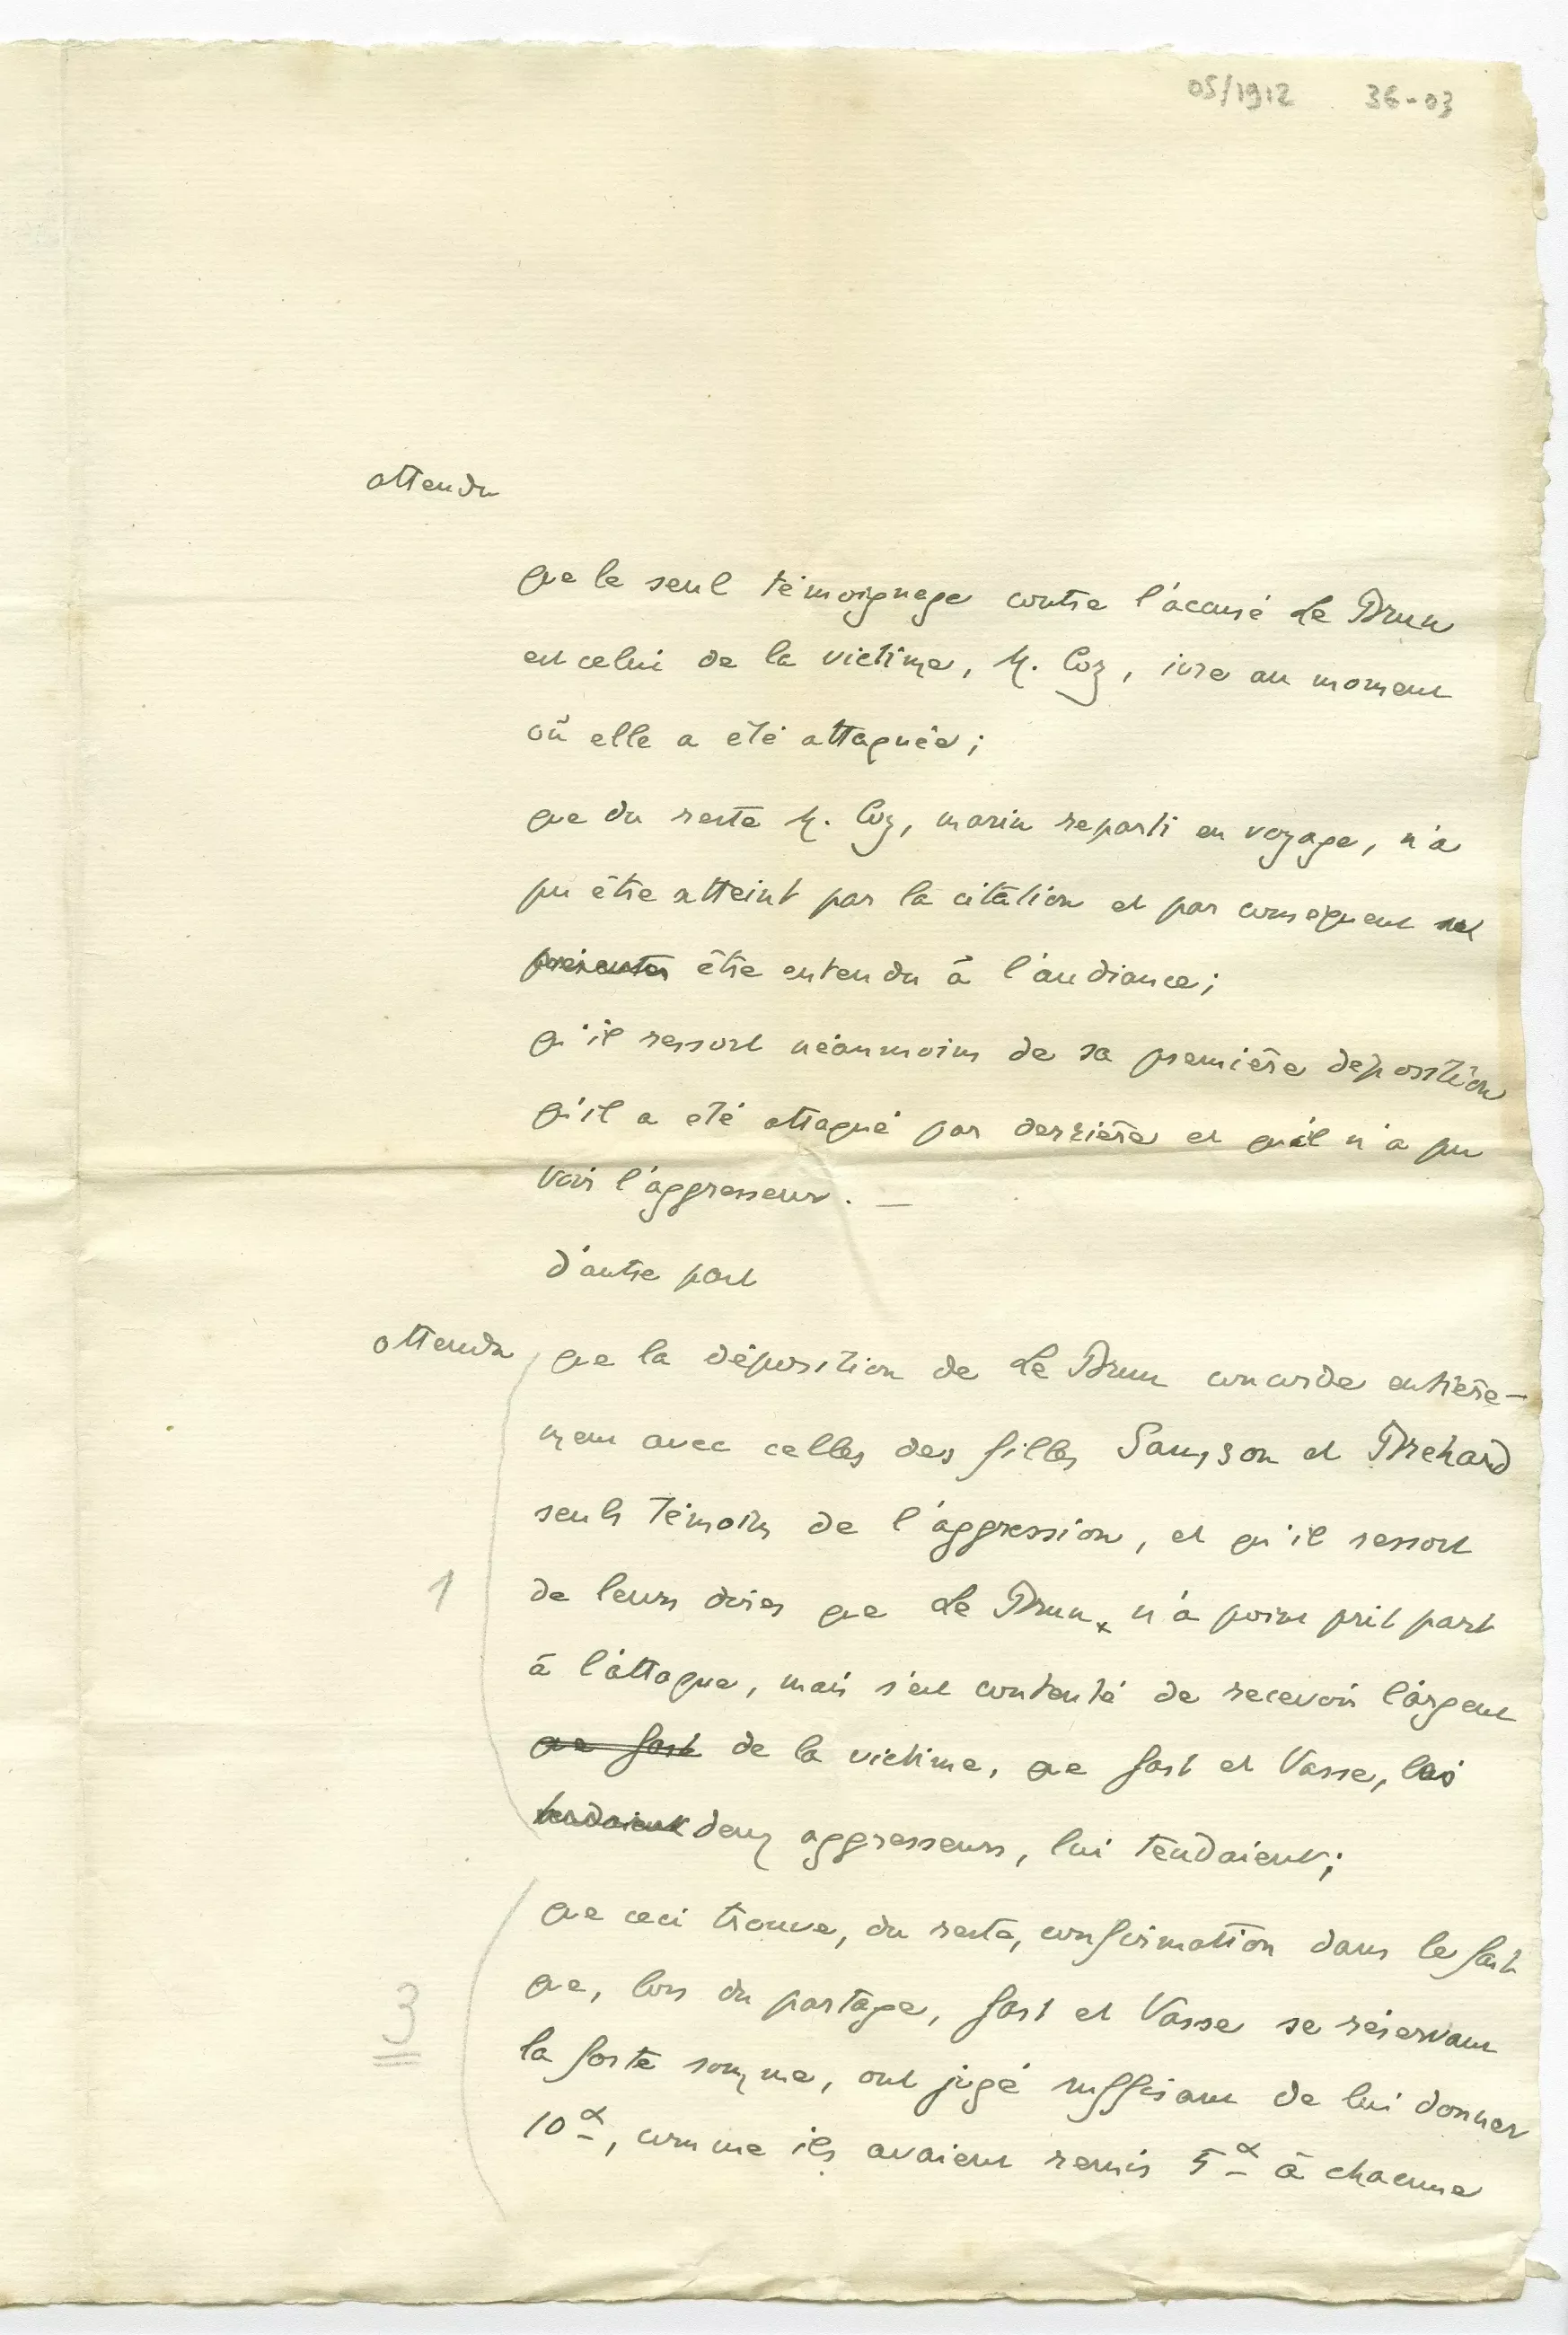 05/1912 36-03
attendu
que le seul témoignage contre l'acausé Le Brun
est celui de la victime, M. Coz, ivre au moment
où elle a été attaquée;
que du reste M. Coz, marin reparti en voyage, n'a
pu être atteint par la citation et par consequent
être entendu à l'audiance;
qu'il ressort néanmoins de sa première deposition
qu'il a été attaqué par derrière et qu'il n'a pu
voir l'aggresseur. —
d'autre part
attendu que la déposition de Le Brun concorde entière-
ment avec celles des filles Samson et Brehard
seuls témoins de l'aggression, et qu'il ressort
1 de leurs dires que Le Brun x n'a point prit part
à l'attaque, mais s'est contenté de recevoir l'argent
que fort de la victime, que fort et Vasse, les
tendaient deux aggresseurs, lui tendaient;
que ceci trouve, du reste, confirmation dans le fait
3 que, lors du partage, fort et Vasse se réservant
la forte somme, ont jugé suffisant de lui donner
10, comme ils avaient remis 5 à chacune